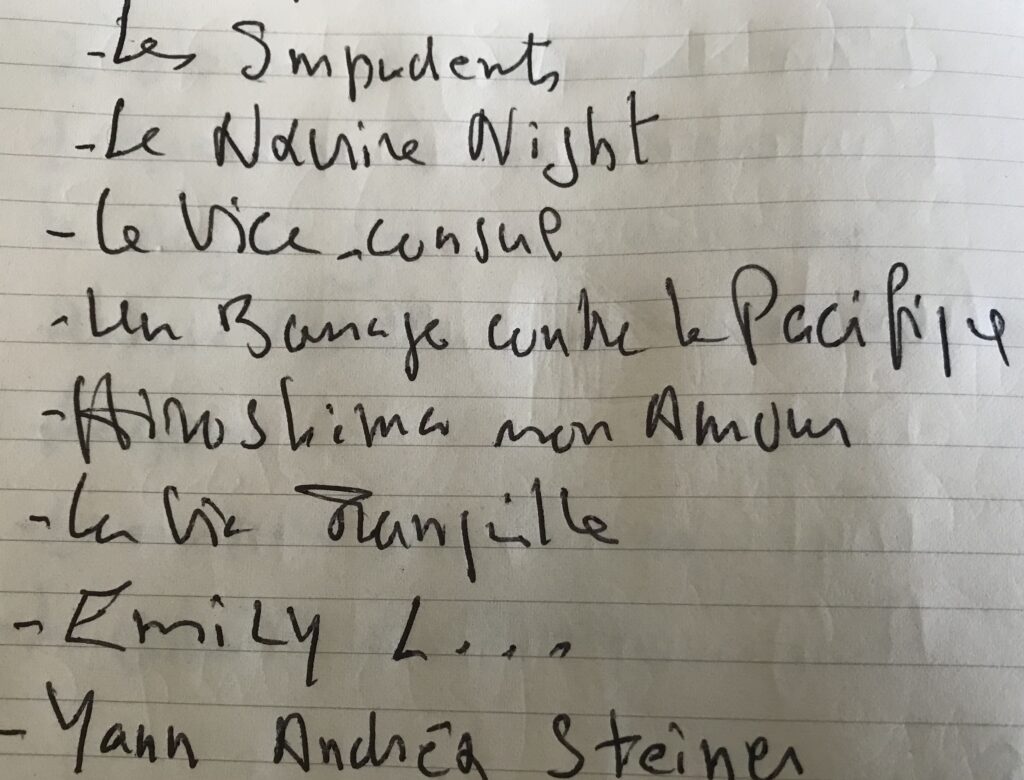 - Les Impudents
- Le Navire Night
- Le Vice-consul
- Un Barrage contre le Pacifique
- Hiroshima mon Amour
- La Vie Tranquille
- Emily L...
- Yann Andréa Steiner